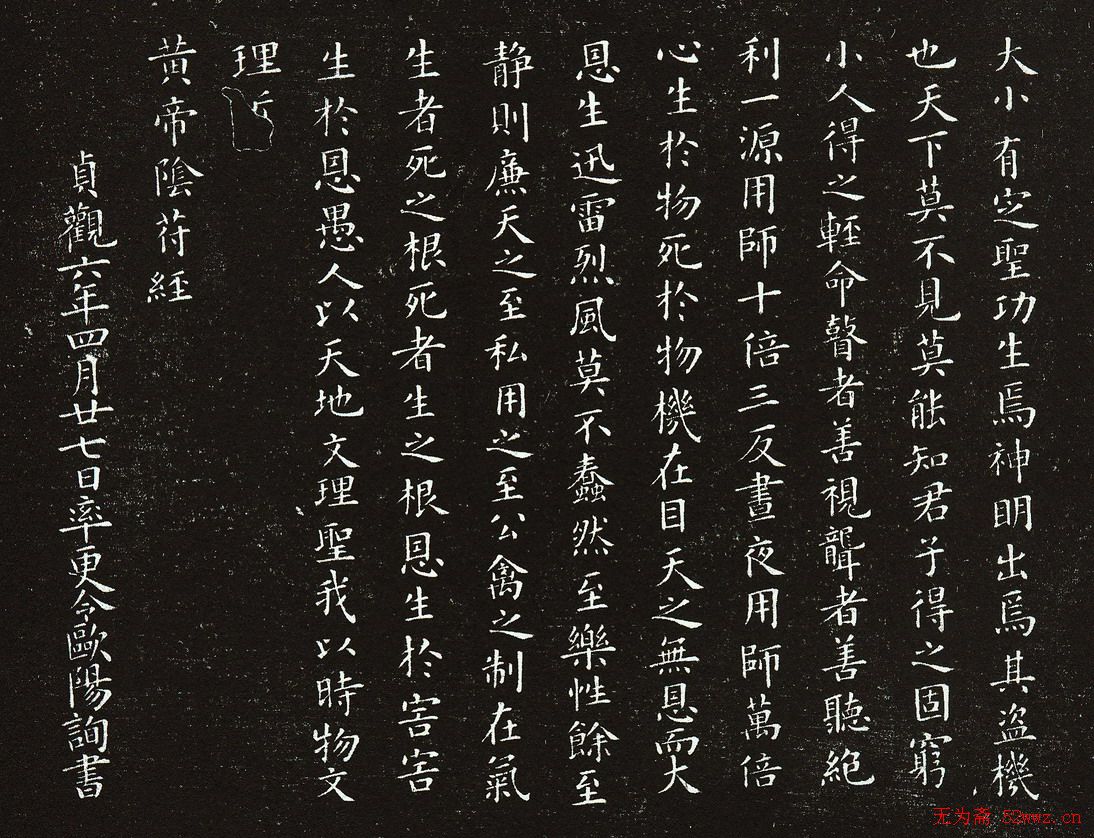 大小有定聖功生焉神明出焉其盜機
也天下莫不見莫能知君子得之固窮
小人得之輕命瞽者善視聾者善聽絕
利一源用師十倍三反晝夜用師萬倍
心生於物死於物機在目天之無恩而大
恩生迅雷烈風莫不蠢然至樂性餘至
静則廉天之至私用之至公禽之制在氣
生者死之根死者生之根恩生於害害
生於恩愚人以天地文理聖我以時物文
理
黃帝陰苻經
貞觀六年四月廿七日率更令歐陽詢書
无为斋 52wwz.cn